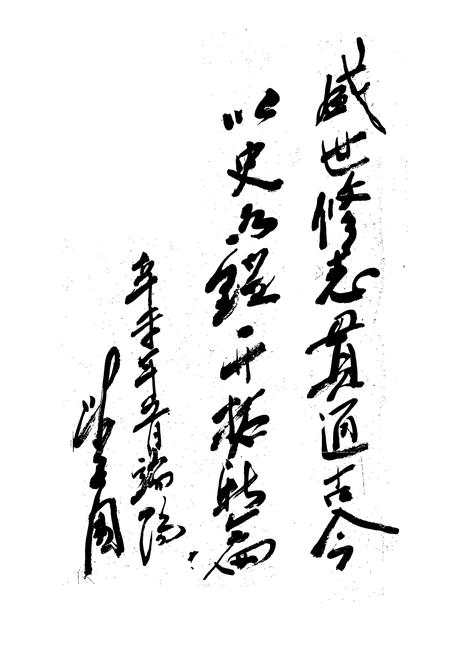 盛世修志贯通古今
以史为鑑开拓新篇
辛未年五月端阳